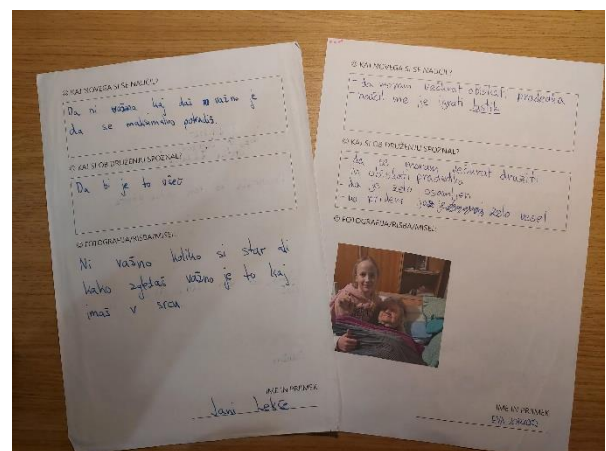 KAJ NOVEGA SI SE NAUČIL?
Da ni važno kaj daš važno je
da se maksimalno potrudiš.
KAJ SI OB DRUŽENJU SPOZNAL?
Da bi je to všeč
FOTOGRAFIJA/RISBA/MISEL:
Ni važno koliko si star ali
kako zgledaš važno je to kaj
imaš v srcu
IME IN PRIIMEK
Jani
KAJ NOVEGA SI SE NAUČIL?
da moram večkrat obiskati pradedka
naučil me je igrati
KAJ SI OB DRUŽENJU SPOZNAL?
- da se moram večkrat družiti
in obiskati pradedka
- da je zelo osamljen
zelo vesel
FOTOGRAFIJA/RISBA/MISEL:
IME IN PRIIMEK
EVA